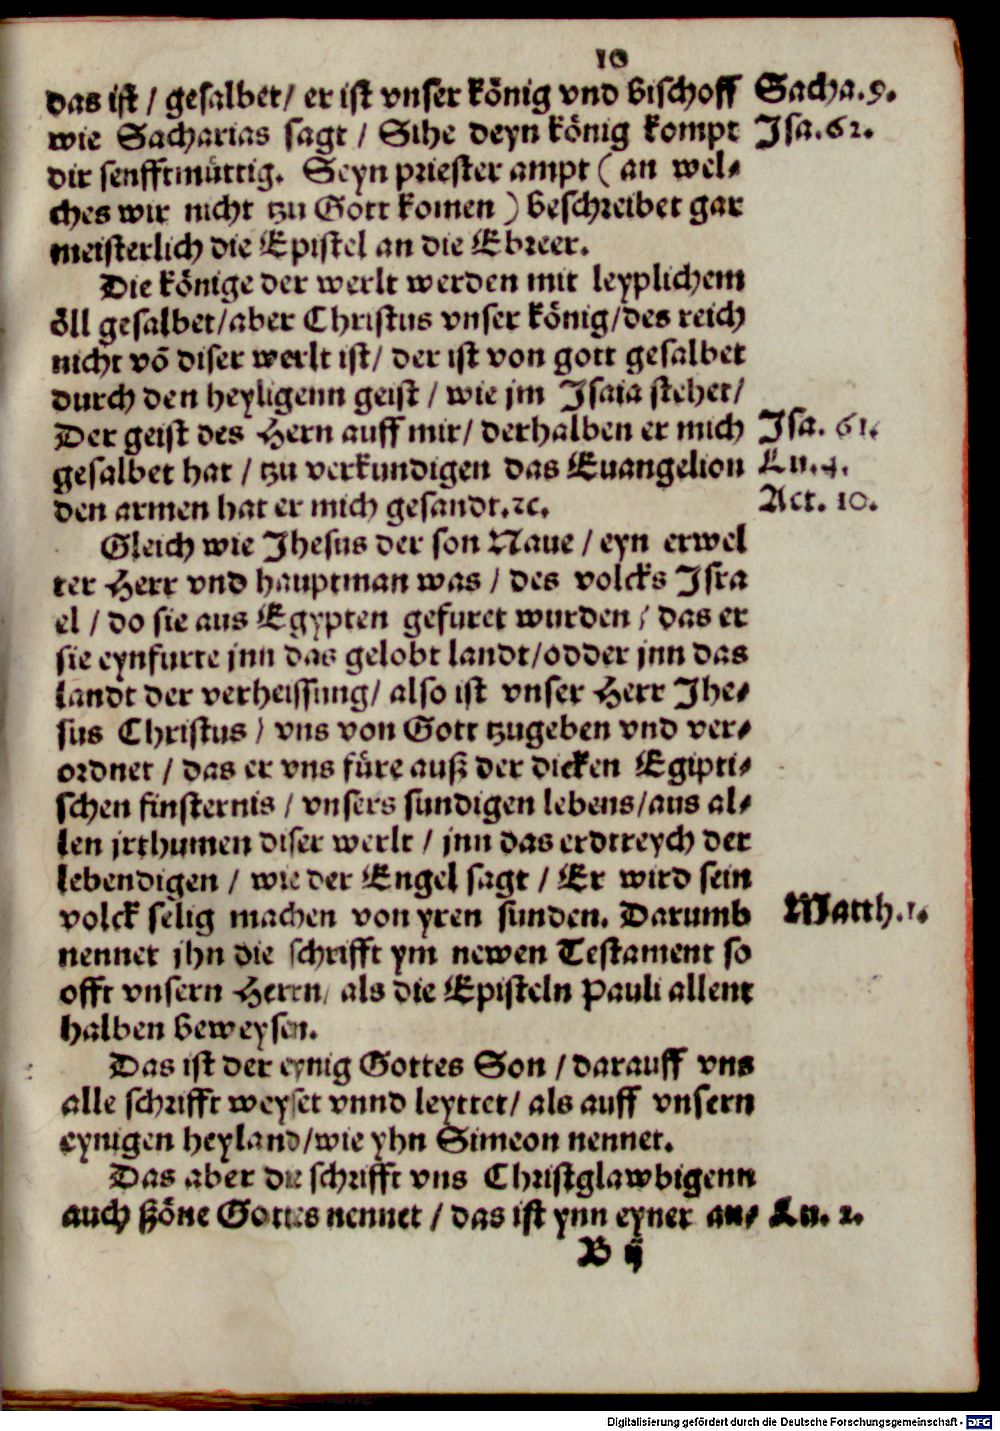 10
das ist / gesalbet / er ist vnser König vnd Bischoff Sacha.9.
wie Sacharias sagt / Sihe deyn König kompt Isa.62.
dir senfftmüttig. Seyn priester ampt ( an wel-
ches wir nicht tzu Gott komen ) beschreibet gar
meisterlich die Epistel an die Ebreer.
Die Könige der werlt werden mit leyplichem
öll gesalbet/aber Christus vnser König/des reich
nicht võ diser werlt ist/ der ist von gott gesalbet
durch den heyligenn geist / wie jm Isaia stehet/
Der geist des Hern auff mir/ derhalben er mich Isa. 61.
gesalbet hat / tzu verkundigen das Euangelion Lu.4.
den armen hat er mich gesandt.ꝛc. Act. 10.
Gleich wie Jhesus der son Naue / eyn erwel
ter Herr vnd hauptman was / des volcks Isra
el / do sie aus Egypten gefuret wurden / das er
sie eynfurte jnn das gelobt landt/odder jnn das
landt der verheissung/ also ist vnser Herr Jhe-
sus Christus / vns von Gott tzugeben vnd ver-
ordnet / das er vns füre auß der dicken Egipti-
schen finsternis / vnsers sundigen lebens/aus al-
len jrthumen diser werlt / jnn das erdtreych der
lebendigen / wie der Engel sagt / Er wird sein
volck selig machen von yren sunden. Darumb Matth.1.
nennet jhn die schrifft ym newen Testament so
offt vnsern Herrn/ als die Episteln Pauli allent
halben beweysen.
Das ist der eynig Gottes Son / darauff vns
alle schrifft weyset vnnd leyttet/ als auff vnsern
eynigen heyland/wie yhn Simeon nennet.
Das aber die schrifft vns Christglawbigenn
auch Söne Gottes nennet / das ist ynn eyner an- Lu. 2.
B ij
Digitalisierung gefördert durch die Deutsche Forschungsgemeinschaft - DFG